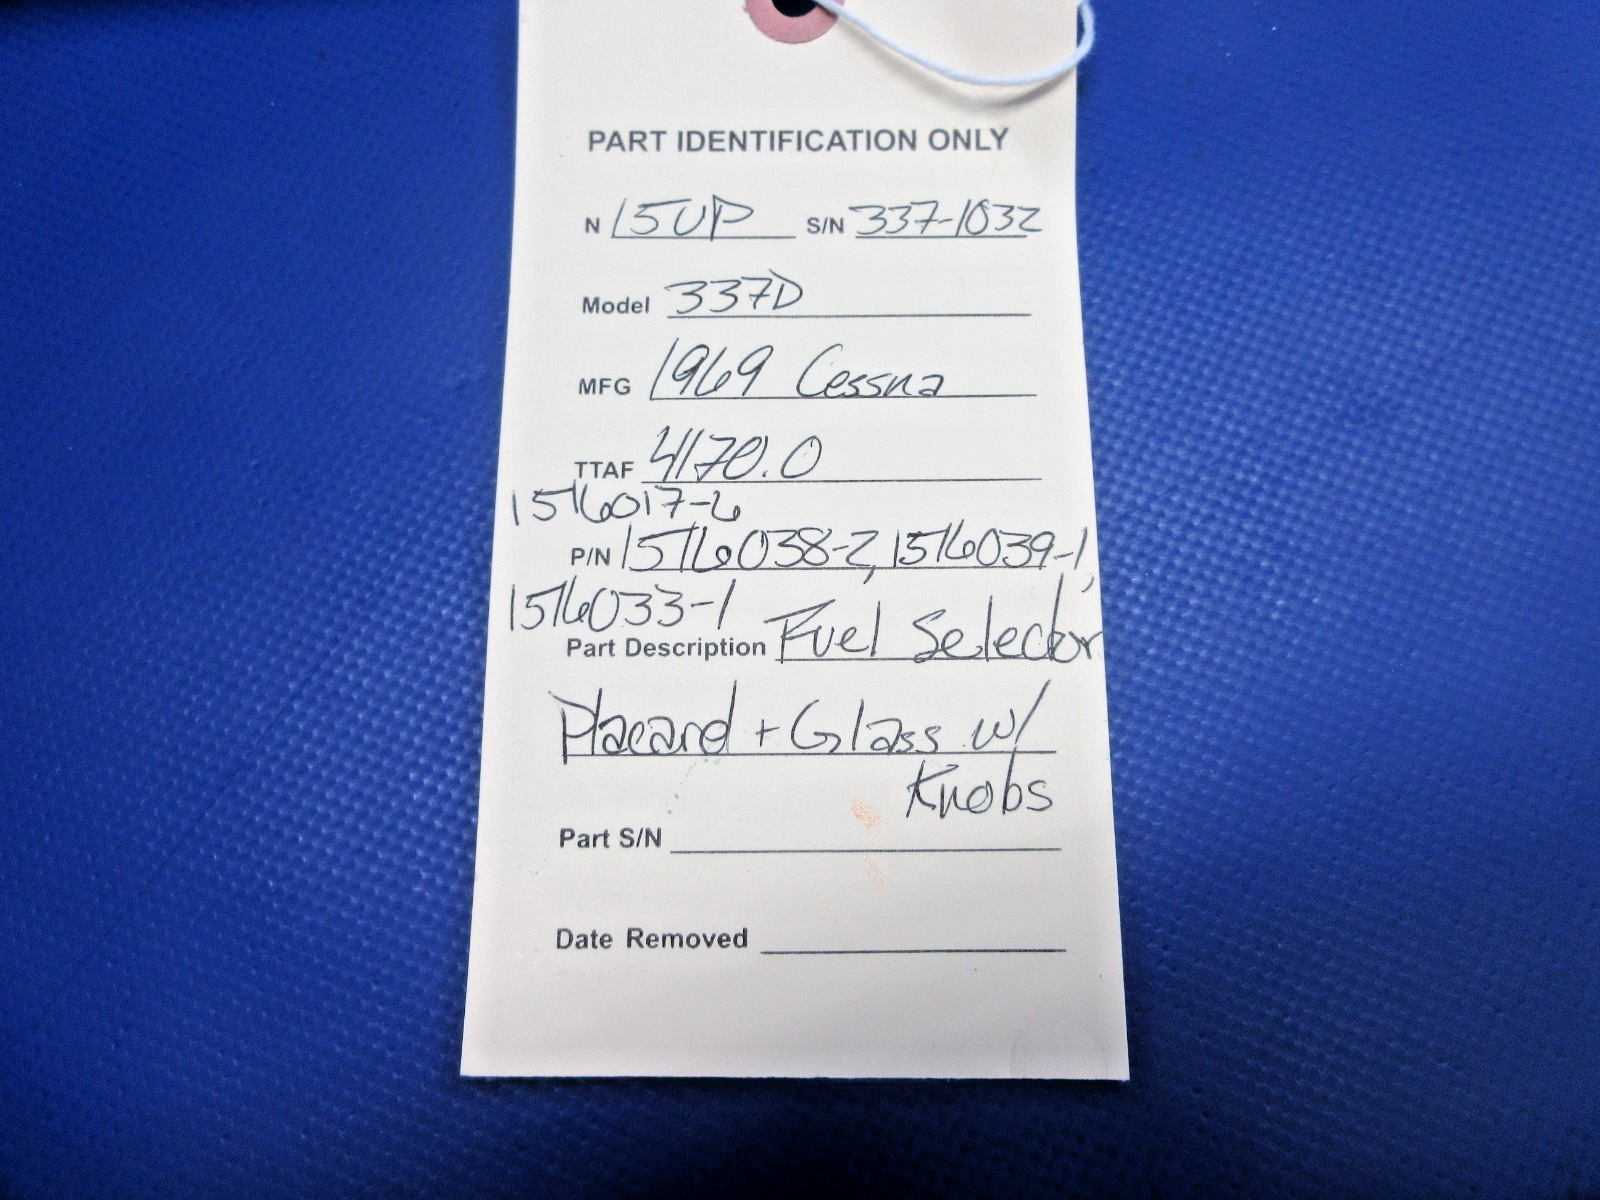 PART IDENTIFICATION ONLY
N 15UP S/N 337-1032
Model 337D
MFG 1969 Cessna
TTAF 4170.0
1516017-6
P/N 1516038-2, 1516039-1,
1516033-1
Part Description Fuel Selector
Placard + Glass w/
Knobs
Part S/N
Date Removed